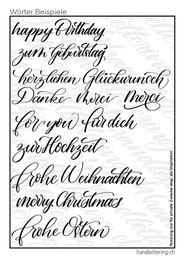 Wörter Beispiele
happy Birthday
zum Geburtstag
herzlichen Glückwunsch
Danke merci Merci
for you für dich
zur Hochzeit
frohe Weihnachten
merry Christmas
frohe Ostern
Nutzung nur für private Zwecke resp. als Inspiration
handlettering.ch